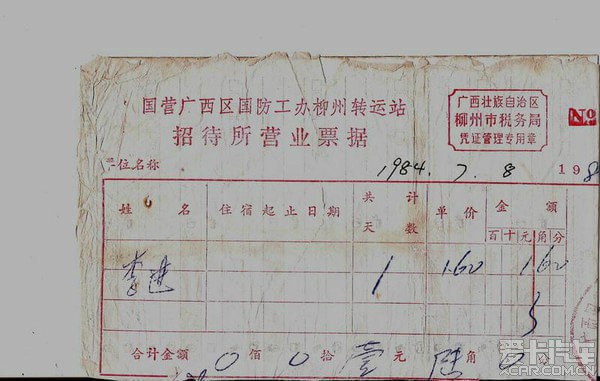 国营广西区国防工办柳州转运站
招待所营业票据
广西壮族自治区
柳州市税务局
凭证管理专用章
No
单位名称 1984. 7. 8 198
姓名 住宿起止日期 共计天数 单价 金额
百 十 元 角 分
李进 1 1.60 1 6 0
合计金额 0 佰 0 拾 壹 元 陆 角 0 分
爱卡汽车
XCAR.COM.CN